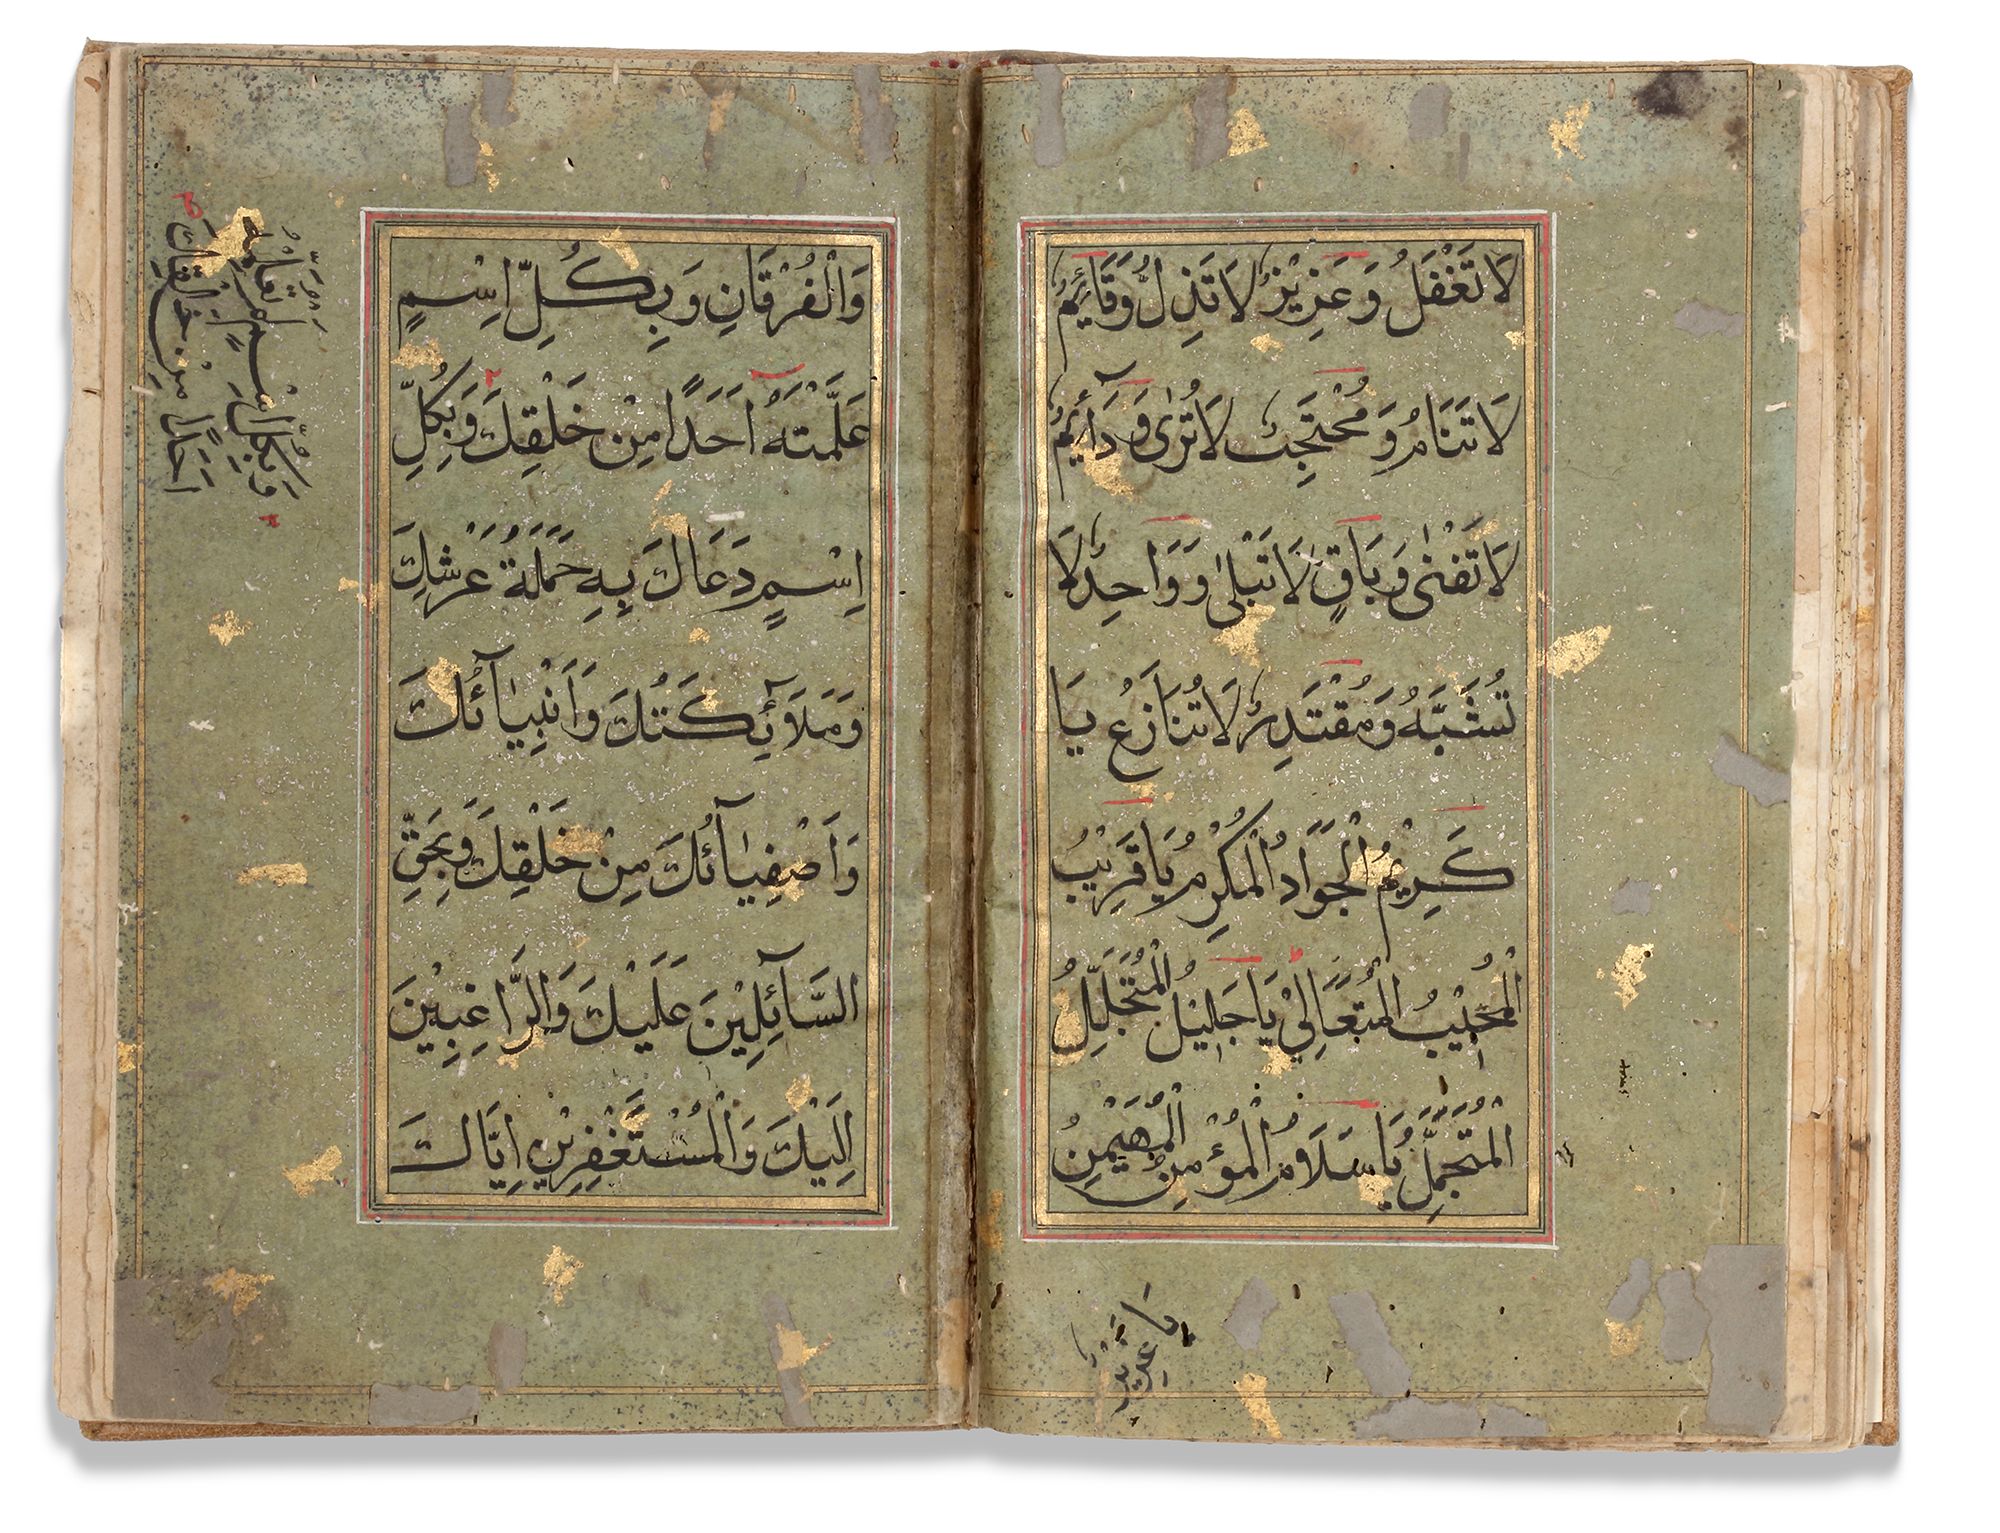 لَا تَغْفَلُ وَعَزِيْزٌ لَا تَذِلُّ وَقَآئِمٌ
لَا تَنَامُ وَمُحْتَجِبٌ لَا تُرٰى وَدَآئِمٌ
لَا تَفْنٰى وَبَاقٍ لَا تَبْلٰى وَوَاحِدٌ لَا
تُشَبَّهُ وَمُقْتَدِرٌ لَا تُنَازَعُ يَا
كَرِيْمُ الْجَوَادُ الْمُكْرِمُ يَا قَرِيْبُ
الْمُجِيْبُ الْمُتَعَالِيْ يَا جَلِيْلُ الْمُتَجَلِّلُ
الْمُتَجَمِّلُ يَا سَلَامُ الْمُؤْمِنُ الْمُهَيْمِنُ
يا عزيز
وَالْفُرْقَانِ وَبِكُلِّ اِسْمٍ
عَلَّمْتَهُ اَحَدًا مِنْ خَلْقِكَ وَبِكُلِّ
اِسْمٍ دَعَاكَ بِهِ حَمَلَةُ عَرْشِكَ
وَمَلَآئِكَتُكَ وَاَنْبِيَآئُكَ
وَاَصْفِيَآئُكَ مِنْ خَلْقِكَ وَبِحَقِّ
السَّآئِلِيْنَ عَلَيْكَ وَالرَّاغِبِيْنَ
اِلَيْكَ وَالْمُسْتَغْفِرِيْنَ اِيَّاكَ
وَبِكُلِّ اسْمٍ
اَحَدًا مِنْ خلقك